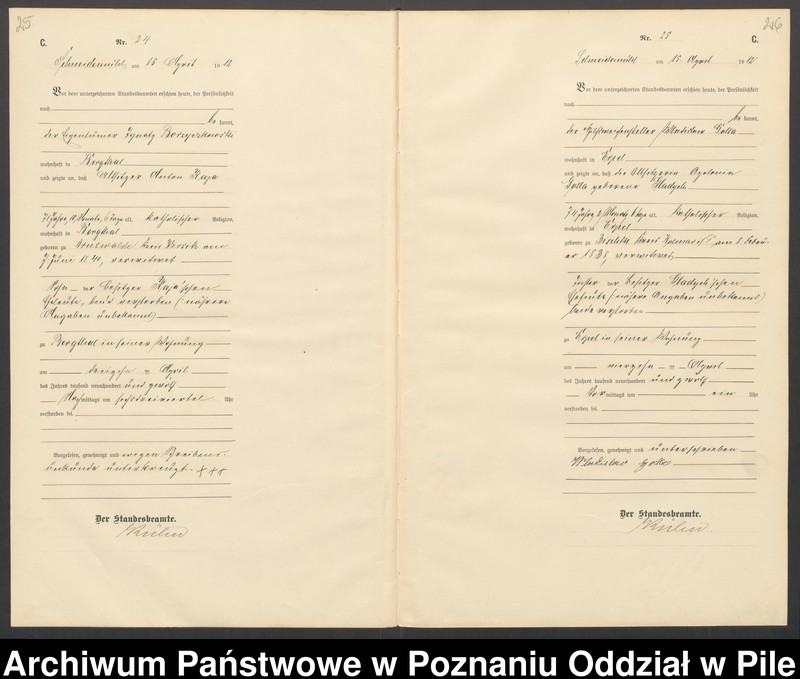 25
C.
Nr. 24
Schneidemühl am 15 April 1912
Vor dem unterzeichneten Standesbeamten erschien heute, der Persönlichkeit
nach
be kannt,
der Eigentümer Ignatz
wohnhaft in Bergthal
und zeigte an, daß Altsitzer Anton Kaja
71 Jahre, 10 Monate, 6 Tage alt, katholischer Religion,
wohnhaft in Bergthal
geboren zu Kreis Wirsitz am
7 Juni 1840, verwitwet
Sohn der Besitzer Kaja'schen
Eheleute, beide verstorben (nähere
Angaben unbekannt)
zu Bergthal in seiner Wohnung
am dreizehn ten April
des Jahres tausend neunhundert und zwölf
Nach mittags um sechsdreiviertel Uhr
verstorben sei.
Vorgelesen, genehmigt und wegen Schreibens-
unkunde unterkreuzt. +++
Der Standesbeamte.
26
C.
Nr. 25
Schneidemühl am 15 April 1912
Vor dem unterzeichneten Standesbeamten erschien heute, der Persönlichkeit
nach
be kannt,
der Hilfsweichensteller Wladislaw Golla
wohnhaft in Erpel
und zeigte an, daß die Altsitzerin Apolonia
Golla geborene
74 Jahre, 2 Monate, 6 Tage alt, katholischer Religion,
wohnhaft in Erpel
geboren zu Kreis Kolmar P am 8. Febru-
ar 1838, verwitwet
Tochter der Besitzer
Eheleute (nähere Angaben unbekannt)
beide verstorben
zu Erpel in seiner Wohnung
am vierzehn ten April
des Jahres tausend neunhundert und zwölf
Vor mittags um ein Uhr
verstorben sei.
Vorgelesen, genehmigt und unterschrieben
Wladislaw Golla
Der Standesbeamte.
Archiwum Państwowe w Poznaniu Oddział w Pile